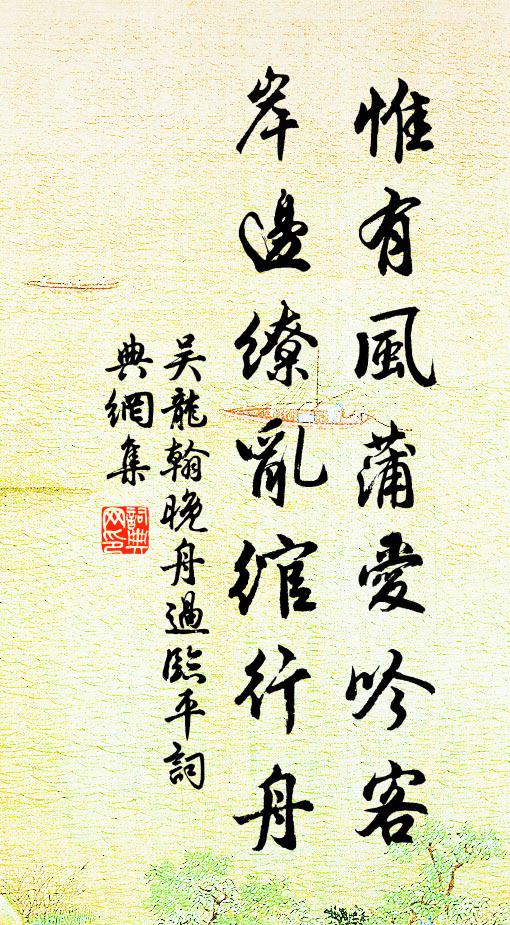 惟有風蒲愛吟客
岸邊繚亂綰行舟
吴龍翰晚舟過臨平詞
典網集
詞典
网印